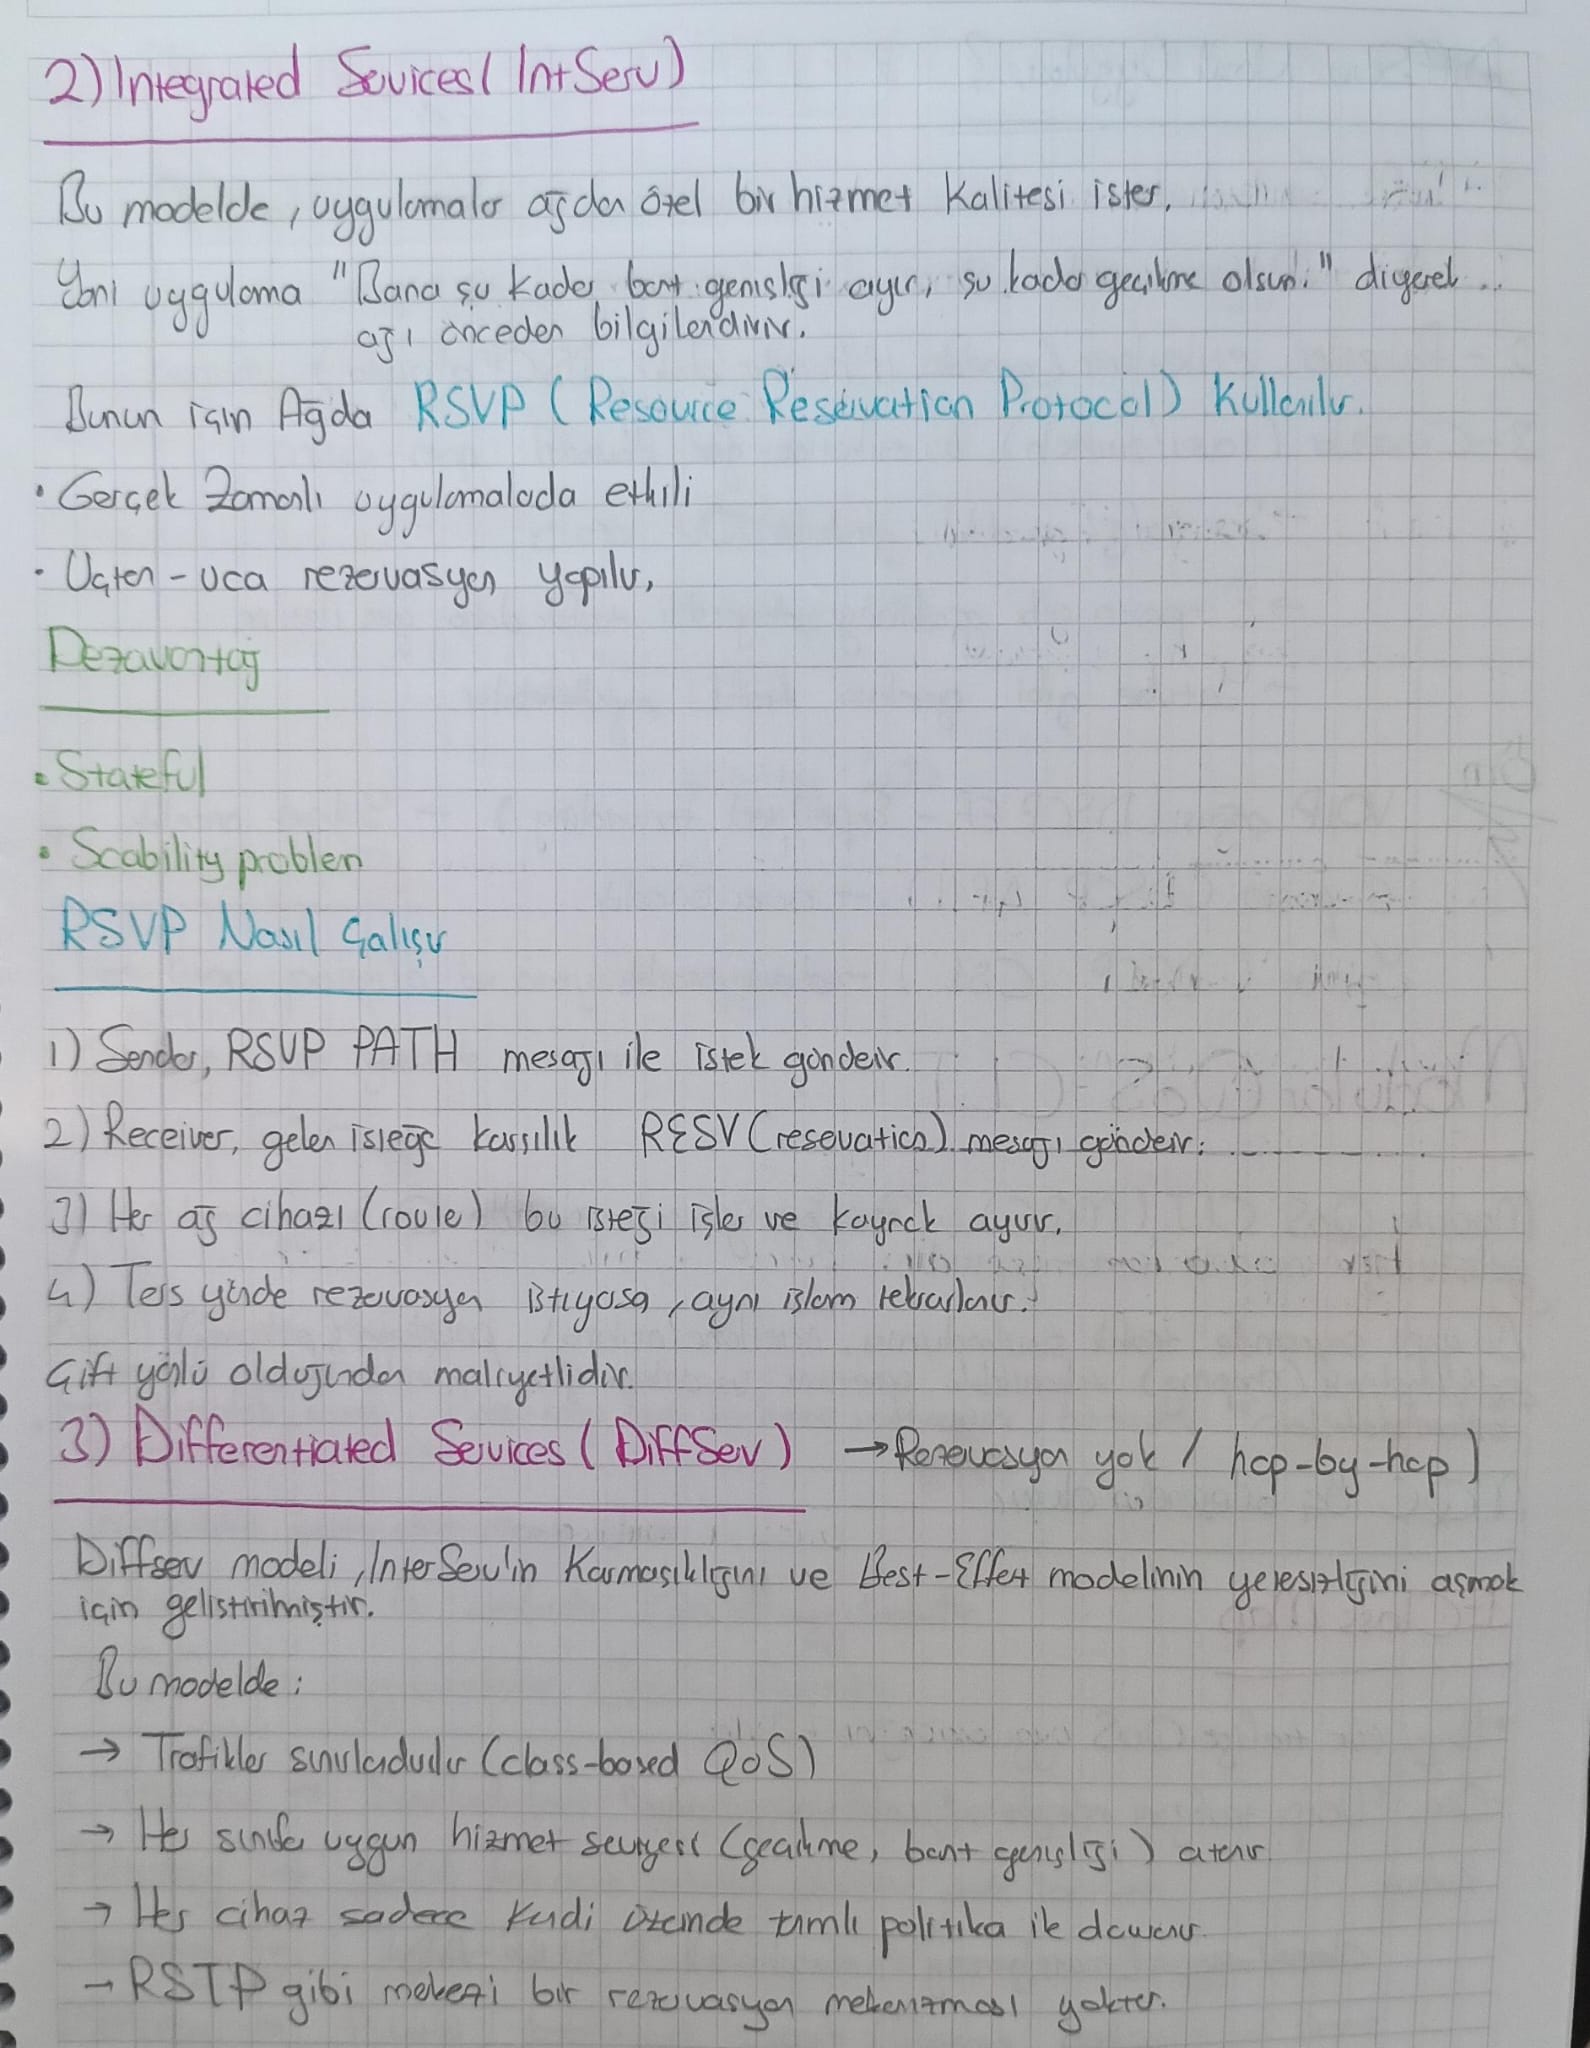 2) Integrated Sevices ( IntServ)
Bu modelde, uygulamalar ağdan özel bir hizmet kalitesi ister.
Yani uygulama "Bana şu kadar bant genişliği ayır, şu kadar gecikme olsun." diyerek
ağı önceden bilgilendirir.
Bunun için Ağda RSVP ( Resource Reservation Protocol) Kullanılır.
• Gerçek Zamanlı uygulamalarda etkili
• Uçtan-uca rezervasyon yapılır,
Dezavantaj
• Stateful
• Scability problem
RSVP Nasıl Çalışır
1) Sender, RSVP PATH mesajı ile istek gönderir.
2) Receiver, gelen isteğe karşılık RESV (reservation) mesajı gönderir.
3) Her ağ cihazı (router) bu isteği işler ve kaynak ayırır.
4) Ters yönde rezervasyon istiyorsa, aynı işlem tekrarlanır.
Çift yönlü olduğundan maliyetlidir.
3) Differentiated Services ( DiffServ) → Rezervasyon yok / hop-by-hop )
Diffserv modeli, InterServ'in Karmaşıklığını ve Best-Effort modelinin yetersizliğini aşmak
için geliştirilmiştir.
Bu modelde :
→ Trafikler sınıflandırılır (class-based QoS)
→ Her sınıfa uygun hizmet seviyesi (gecikme, bant genişliği) atanır.
→ Her cihaz sadece kendi üzerinde tanımlı politika ile davranır.
→ RSTP gibi merkezi bir rezervasyon mekanizması yoktur.